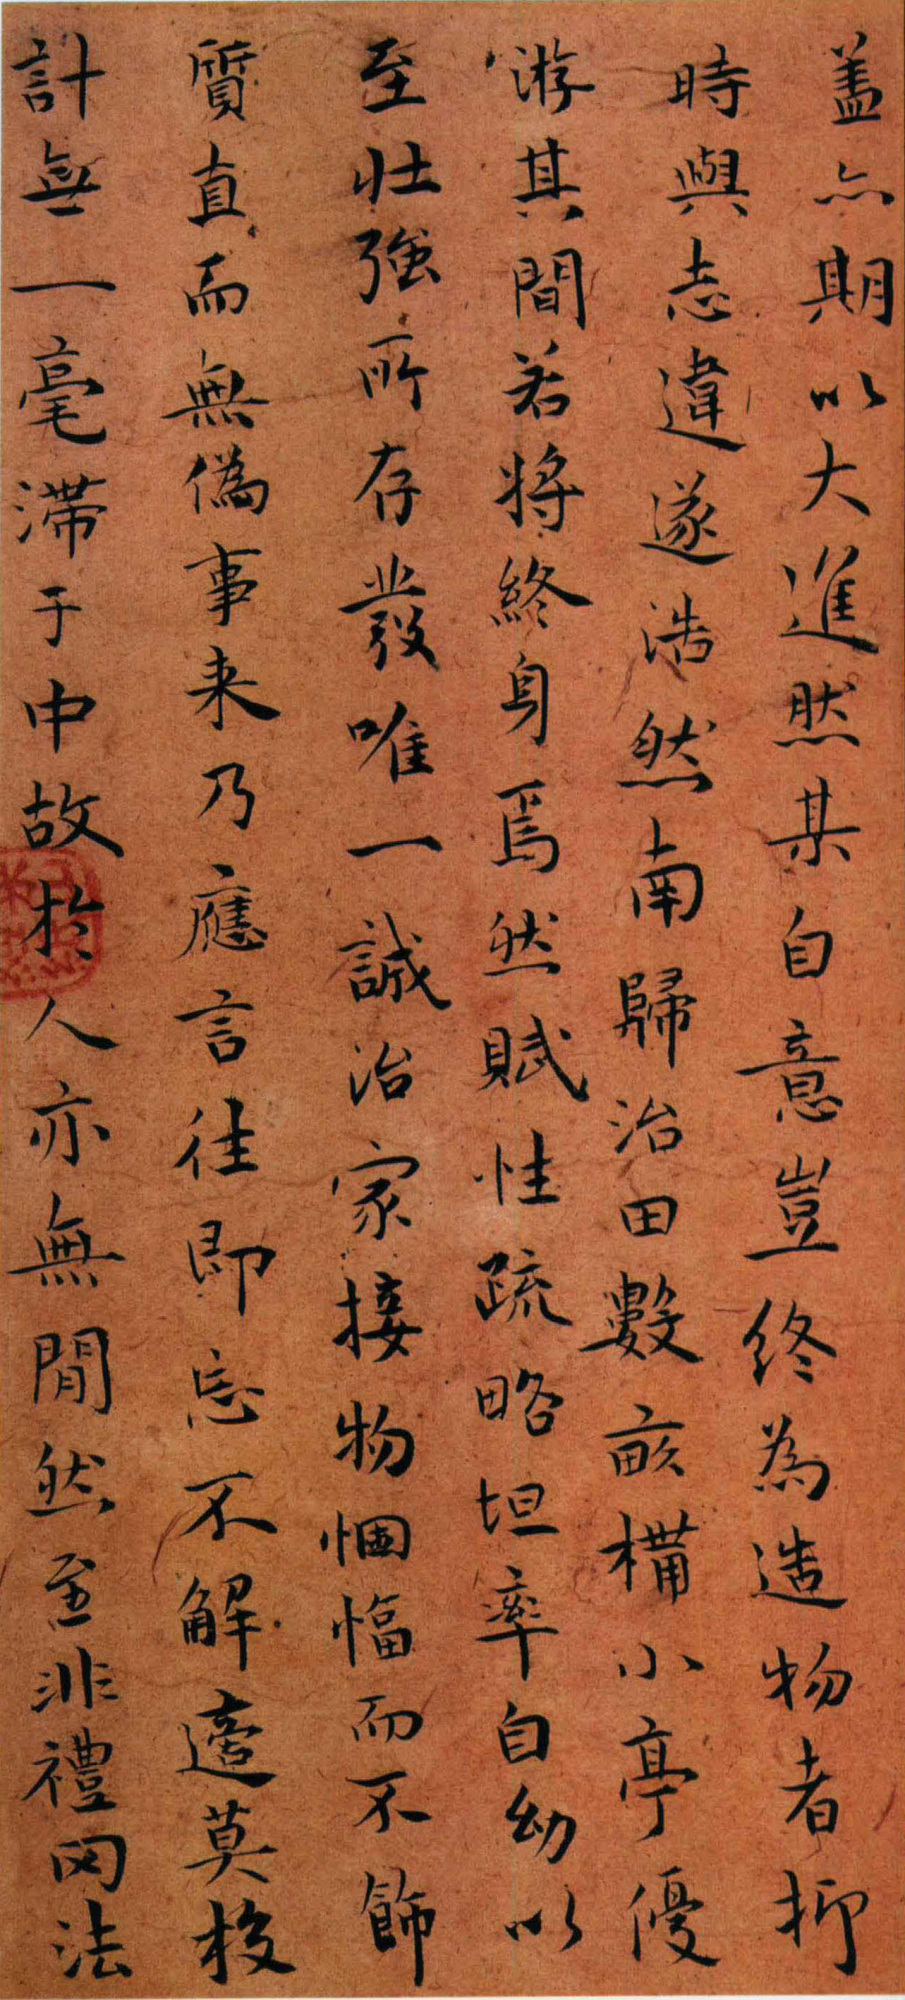 盖亦期以大進然某自意豈终為造物者抑
時與志違遂浩然南歸治田數畝構小亭優
游其間若將終身焉然賦性疏略坦率自幼以
至壯強所存發唯一誠治家接物悃愊而不飾
質直而無偽事来乃應言往即忘不解適莫校
計無一毫滞于中故於人亦無間然至非禮罔法